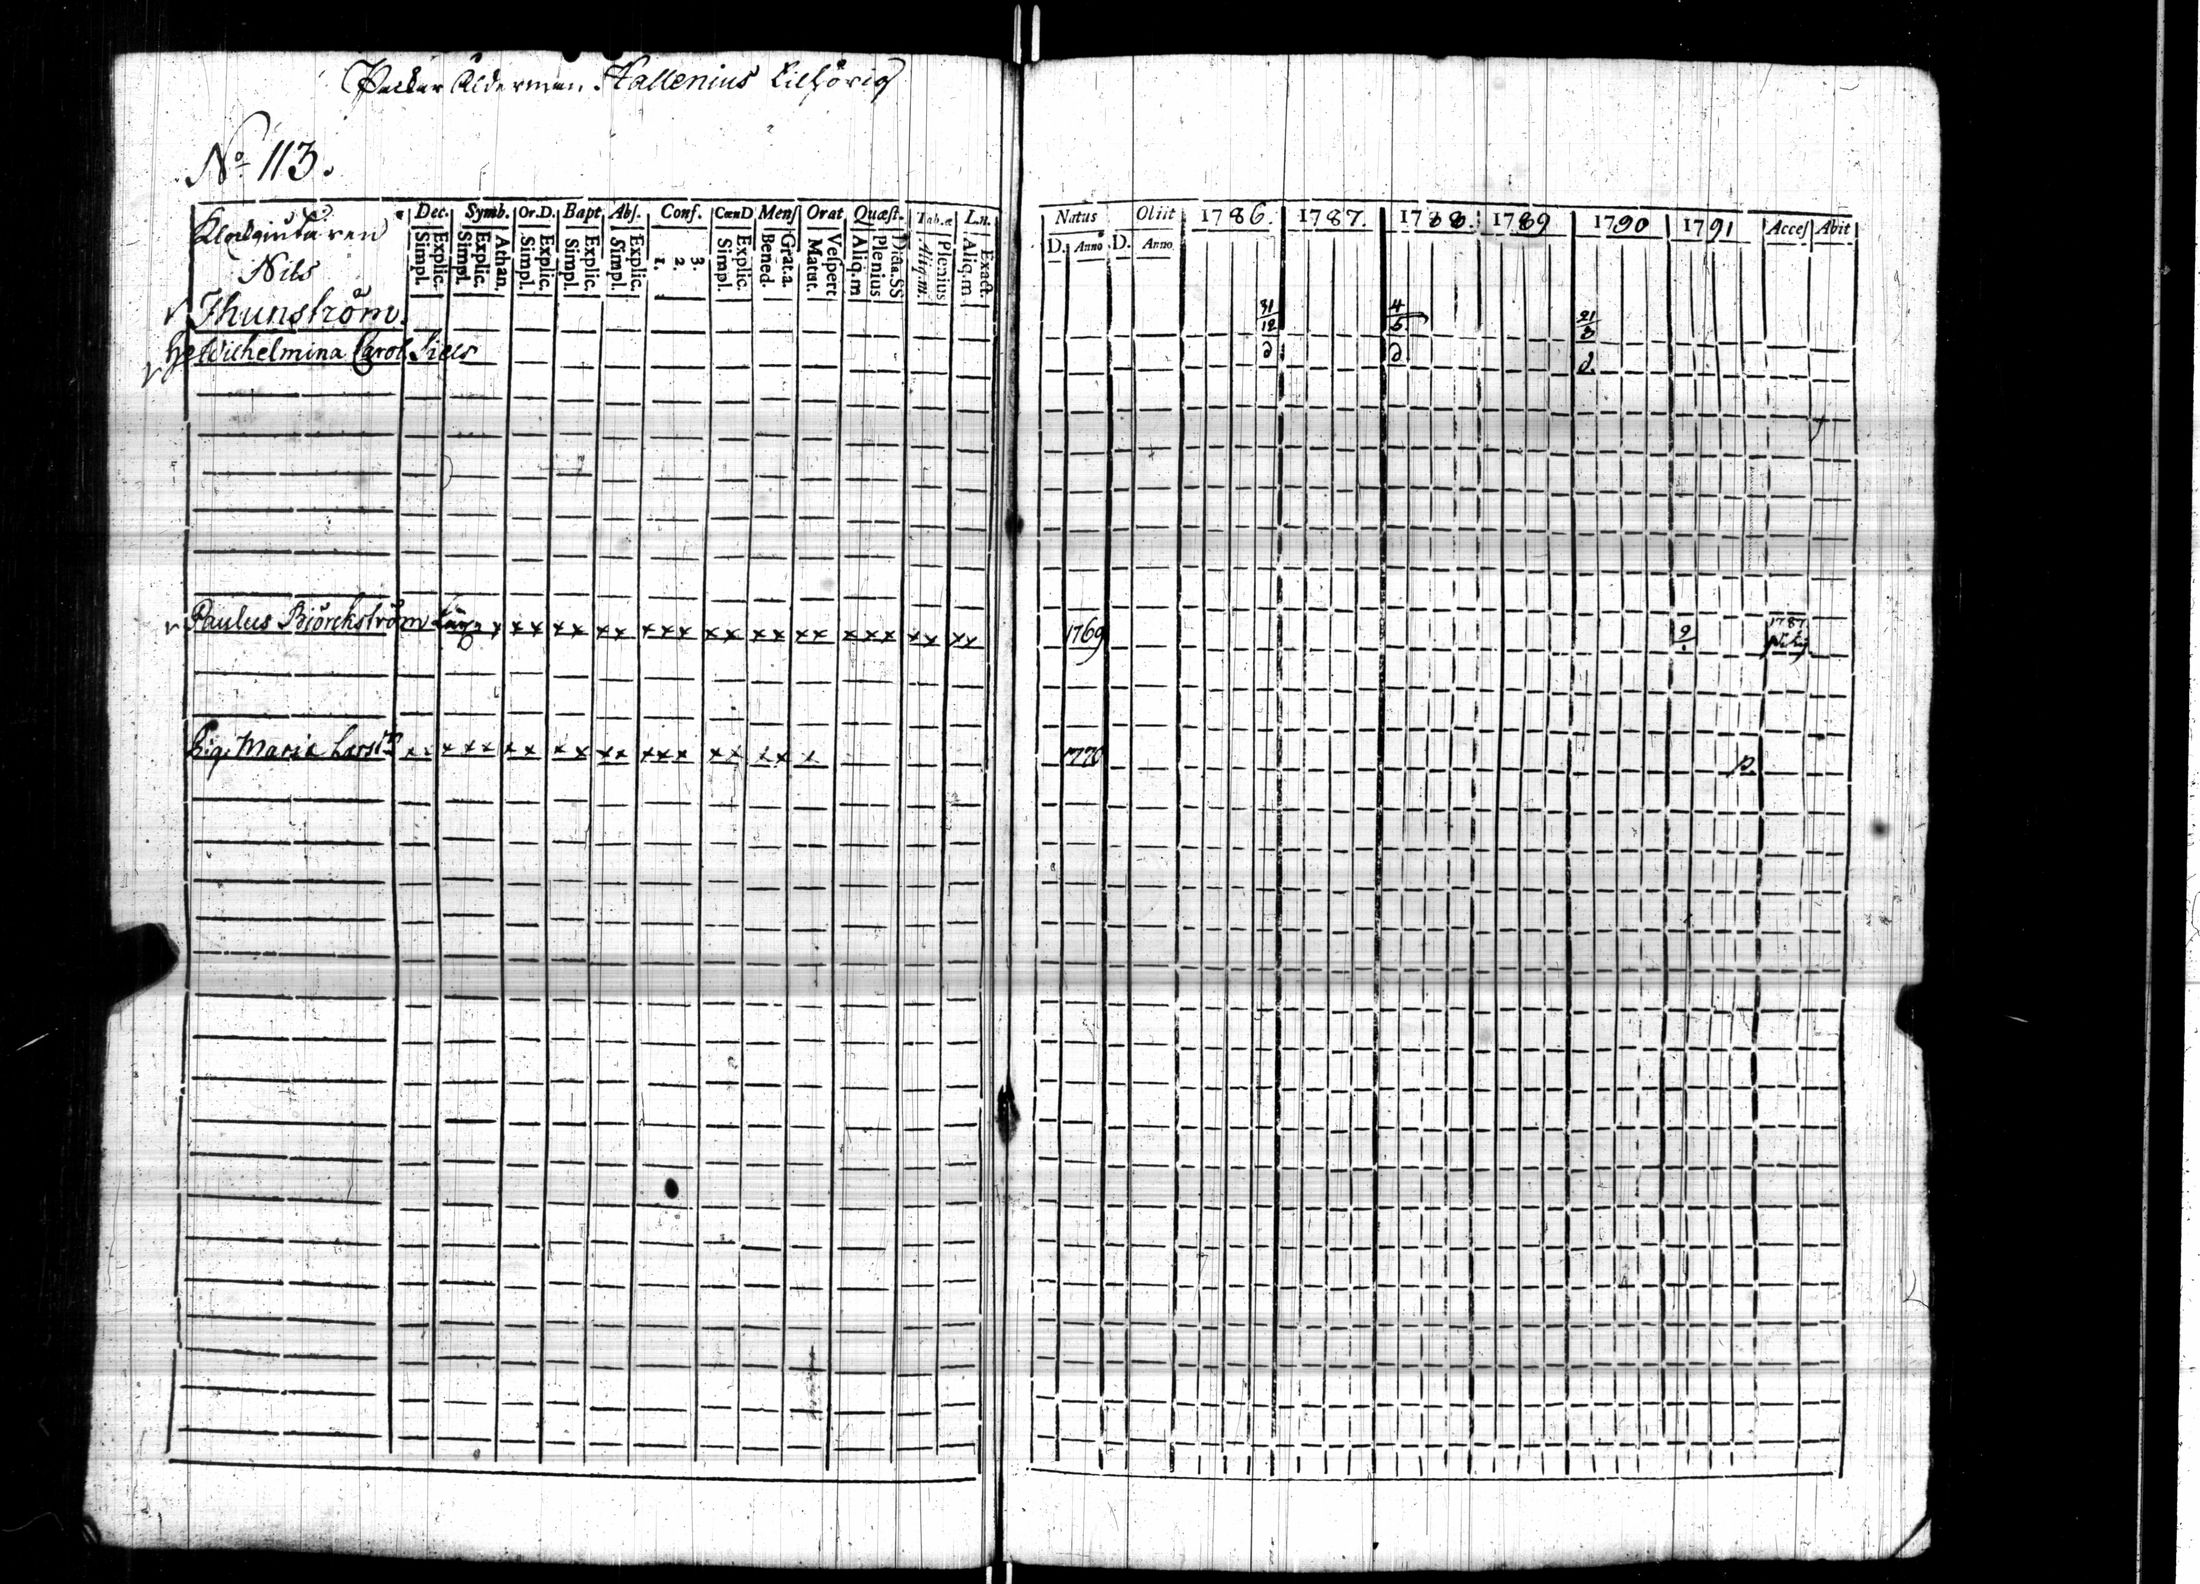 Ålderman Hallenius tilhörig
No 113.
Dec. Symb. Or.D. Bapt Abs. Conf. CœnD Mens Orat Quæst. Tab.æ L.n.
Simpl. Explic. Simpl. Explic. Athan. Simpl. Explic. Simpl. Explic. Simpl. Explic. 1. 2. 3. Simpl. Explic. Bened. Grat.a. Matut. Vespert Aliq.m Plenius Dicta.SS Aliq.m. Plenius Aliq.m Exact.
Natus Obiit 1786. 1787. 1788. 1789 1790 1791 Acces Abit
D. Anno D. Anno
Nils
Thunström. 31/12 4/5 21/3
Wilhelmina Carol. d d d
Paulus Björckström x x x x x x x x x x x x x x x x x x x x x x 1769 1787
Pig. Maria Larsd:r x x x x x x x x x x x x x x x x x x x x 1770